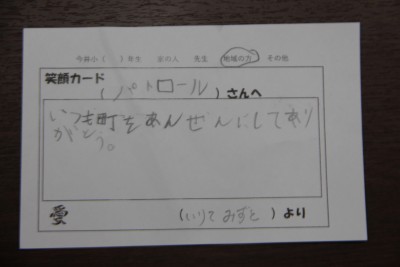 今井小（　）年生　家の人　先生　地域の方　その他
笑顔カード
（パトロール）さんへ
いつも町をあんぜんにしてあり
がとう。
愛　（いりて みずと）より